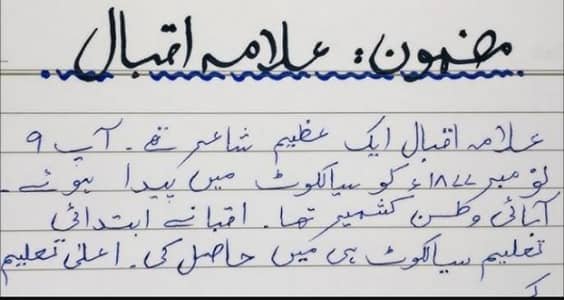 مضمون: علامہ اقبال
علامہ اقبال ایک عظیم شاعر تھے۔ آپ ۹
نومبر ۱۸۷۷ء کو سیالکوٹ میں پیدا ہوئے۔
آبائی وطن کشمیر تھا۔ اقبا نے ابتدائی
تعلیم سیالکوٹ ہی میں حاصل کی۔ اعلیٰ تعلیم